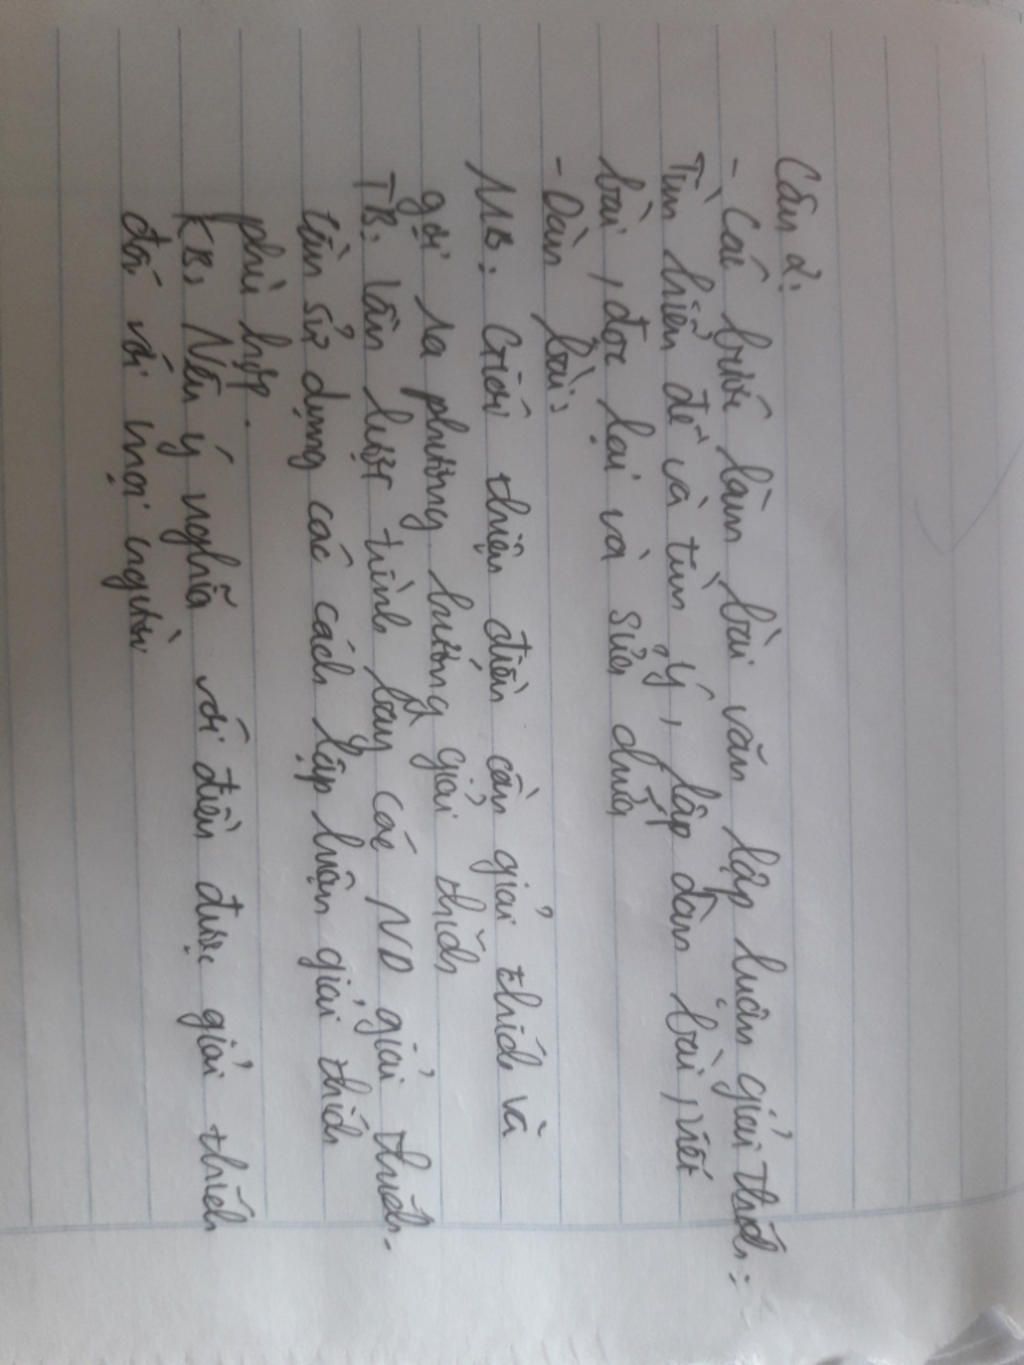 Câu 2:
- Các bước làm bài văn lập luận giải thích:
Tìm hiểu đề và tìm ý, lập dàn bài, viết
bài, đọc lại và sửa chữa
- Dàn bài:
MB: Giới thiệu điều cần giải thích và
gợi ra phương hướng giải thích
TB: lần lượt trình bày các ND giải thích.
Cần sử dụng các cách lập luận giải thích
phù hợp.
KB: Nêu ý nghĩa với điều được giải thích
đối với mọi người